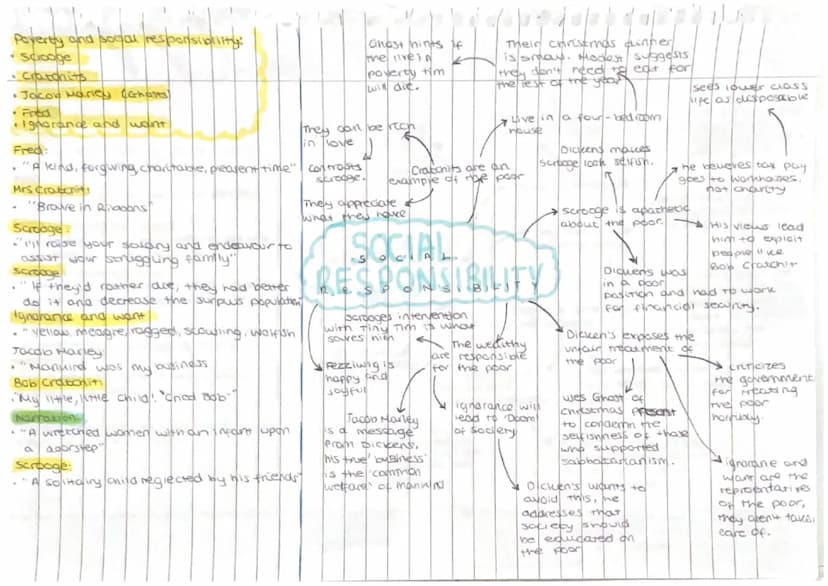 Poverty and social responsibility:
• Scrooge
• Cratchits
• Jacob Marley (Ghosts)
• Fred
• Ignorance and want
Fred:
• "A kind, forgiving, charitable, pleasent time"
Mrs Cratchit:
• "Brave in Ribbons"
Scrooge:
• "I'll raise your salary and endeavour to
assist your struggling family"
Scrooge
• "If they'd rather die, they had better
do it and decrease the surplus population"
Ignorance and want
• "Yellow, meagre, ragged, scowling, wolfish
Jacob Marley:
• "Mankind was my business
Bob Cratchit:
• "My little, little child!" "Cried Bob"
Narration:
• "A wretched women with an infant upon
a doorstep"
Scrooge:
• "A solitary child neglected by his friends"
Ghost hints if
the live in
poverty tim
will die.
Their christmas dinner
is small. Modest suggests
they don't need to eat for
the rest of the year
Live in a four-bedroom
house
They can be rich
in love
contrasts
scrooge.
They appreciate
what they have
Cratchits are an
example of the poor
SOCIAL
RESPONSIBILITY
SOCIAL
RESPONSIBILITY
Dickens makes
Scrooge look selfish.
sees lower class
life as disposable
he believes tax pay
goes to workhouses.
not charity
scrooge is apathetic
about the poor.
His views lead
him to exploit
people like
Bob Cratchit
Dickens was
in a poor
position and had to work
for financial security.
Scrooges intervention
with Tiny Tim is what
saves him
The wealthy
are responsible
for the poor
Fezziwig is
happy and
joyful
Jacob Marley
is a message
from Dickens,
his true 'business'
is the 'common
welfare' of mankind
ignorance will
lead to 'Doom'
of society
Dicken's wants to
avoid this, he
addresses that
society should
be educated on
the poor
Dicken's exposes the
unfair treatment of
the poor
uses Ghost of
christmas present
to condemn the
selfishness of those
who supported
sabbatarianism.
criticizes
the government
for treating
the poor
horribly.
ignorane and
want are the
representatives
of the poor,
they arent taken
care of.